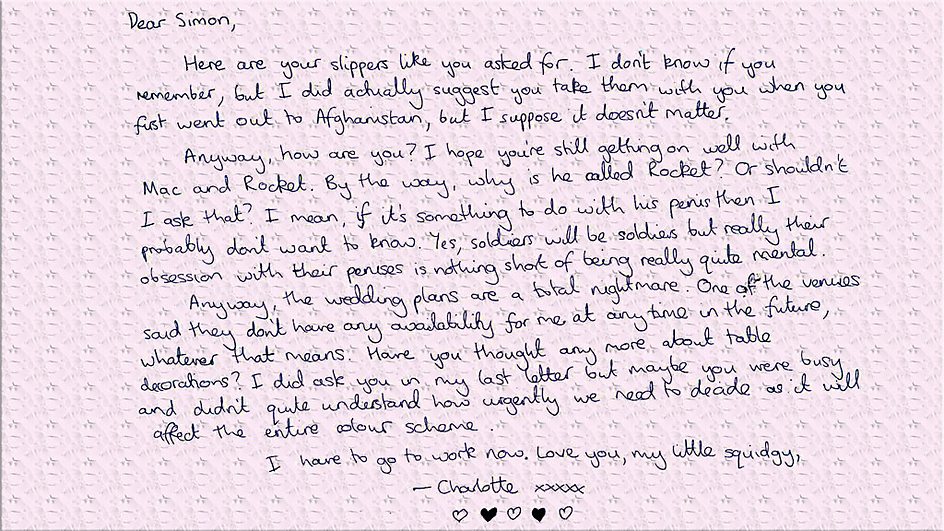 Dear Simon,
Here are your slippers like you asked for. I don't know if you
remember, but I did actually suggest you take them with you when you
first went out to Afghanistan, but I suppose it doesn't matter.
Anyway, how are you? I hope you're still getting on well with
Mac and Rocket. By the way, why is he called Rocket? Or shouldn't
I ask that? I mean, if it's something to do with his penis then I
probably don't want to know. Yes, soldiers will be soldiers but really their
obsession with their penises is nothing short of being really quite mental.
Anyway, the wedding plans are a total nightmare. One of the venues
said they don't have any availability for me at any time in the future,
whatever that means. Have you thought any more about table
decorations? I did ask you in my last letter but maybe you were busy
and didn't quite understand how urgently we need to decide as it will
affect the entire colour scheme.
I have to go to work now. Love you, my little squidgy,
— Charlotte xxxxx
♡ ♥ ♡ ♥ ♡